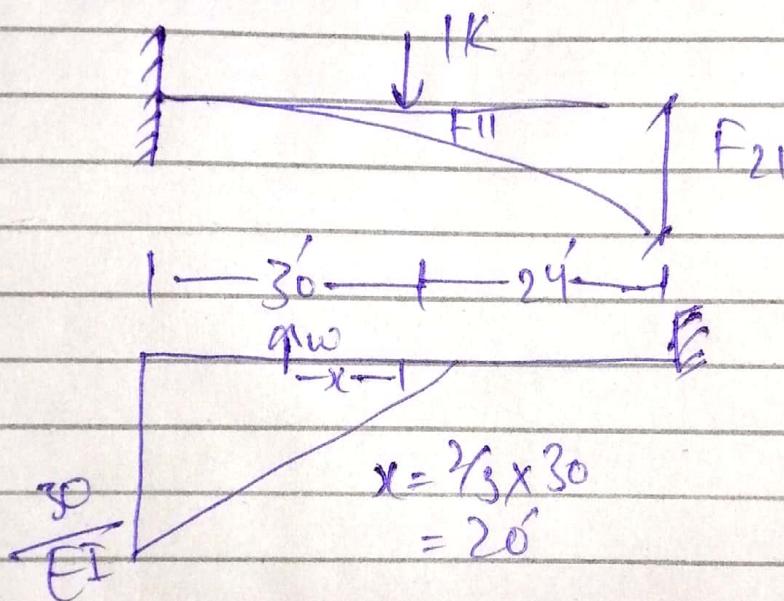 1K
F11
F21
30'
24'
w
x
x = 2/3 x 30
= 20'
30
EI